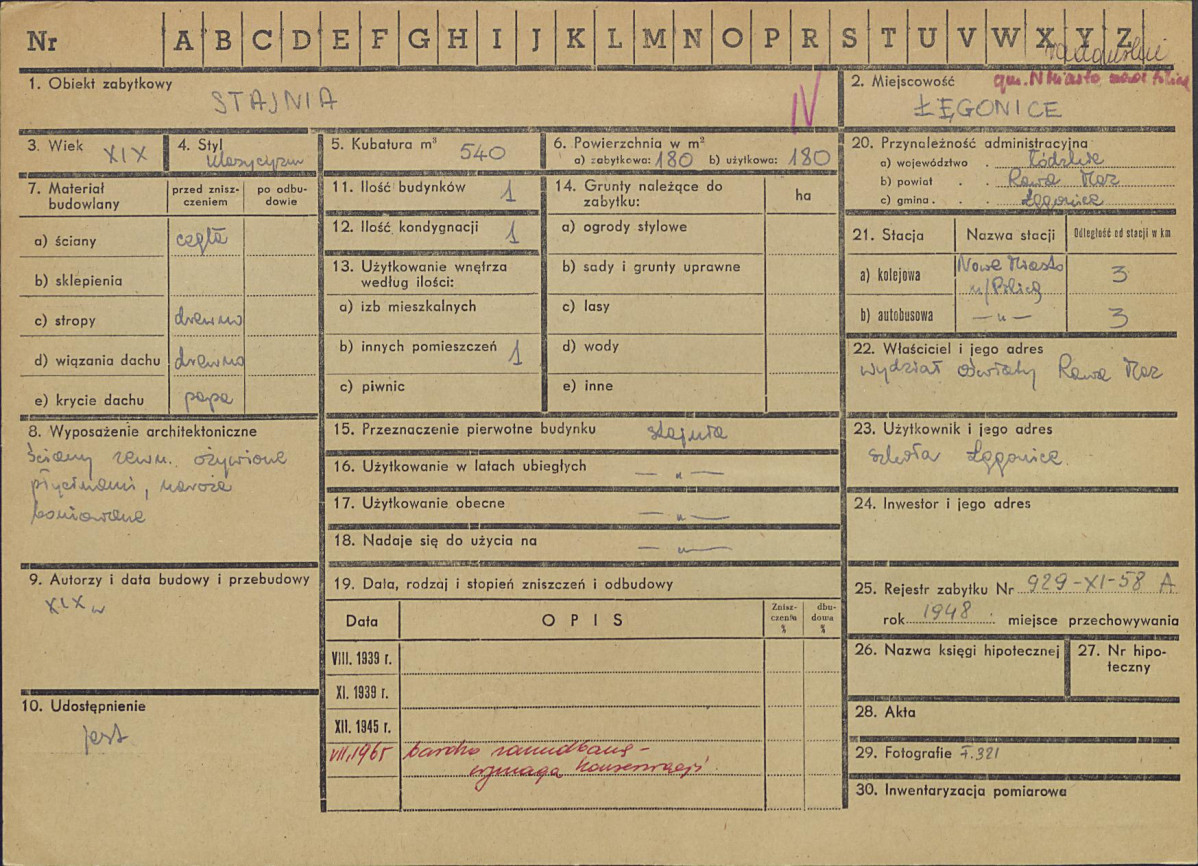 Nr A B C D E F G H I J K L M N O P R S T U V W X Y Z
1. Obiekt zabytkowy
STAJNIA
IV
2. Miejscowość
gm. N Miasto nad Pilicą
ŁĘGONICE
3. Wiek XIX
4. Styl klasycyzm
5. Kubatura m³ 540
6. Powierzchnia w m²
a) zabytkowa: 180 b) użytkowa: 180
7. Materiał budowlany
przed zniszczeniem
po odbudowie
a) ściany cegła
b) sklepienia
c) stropy drewno
d) wiązania dachu drewno
e) krycie dachu papa
8. Wyposażenie architektoniczne
ściany zewn. ożywione
płycinami, naroża
boniowane
9. Autorzy i data budowy i przebudowy
XIX w
10. Udostępnienie
jest
11. Ilość budynków 1
12. Ilość kondygnacji 1
13. Użytkowanie wnętrza
według ilości:
a) izb mieszkalnych
b) innych pomieszczeń 1
c) piwnic
14. Grunty należące do
zabytku:
ha
a) ogrody stylowe
b) sady i grunty uprawne
c) lasy
d) wody
e) inne
15. Przeznaczenie pierwotne budynku stajnia
16. Użytkowanie w latach ubiegłych — „ —
17. Użytkowanie obecne — „ —
18. Nadaje się do użycia na — „ —
19. Data, rodzaj i stopień zniszczeń i odbudowy
Data
OPIS
Zniszczenia %
dbudowa %
VIII. 1939 r.
XI. 1939 r.
XII. 1945 r.
VII, 1965 bardzo zaniedbane –
wymaga konserwacji
20. Przynależność administracyjna
a) województwo . Łódzkie
b) powiat . . Rawa Maz
c) gmina . . Łęgonice
21. Stacja
Nazwa stacji
Odległość od stacji w km
a) kolejowa Nowe Miasto 3
n/Pilicą
b) autobusowa — „ — 3
22. Właściciel i jego adres
wydział Oświaty Rawa Maz
23. Użytkownik i jego adres
szkoła Łęgonice
24. Inwestor i jego adres
25. Rejestr zabytku Nr 929-XI-58 A
rok 1948 miejsce przechowywania
26. Nazwa księgi hipotecznej
27. Nr hipoteczny
28. Akta
29. Fotografie F.321
30. Inwentaryzacja pomiarowa